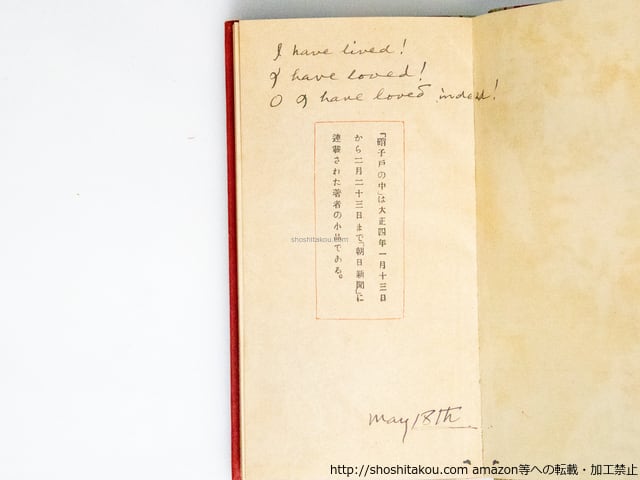 I have lived!
I have loved!
O I have loved indeed!
「硝子戸の中」は大正四年一月十三日
から二月二十三日まで「朝日新聞」に
連載された著者の小品である。
shoshitakou.com
May 18th
http://shoshitakou.com amazon等への転載・加工禁止